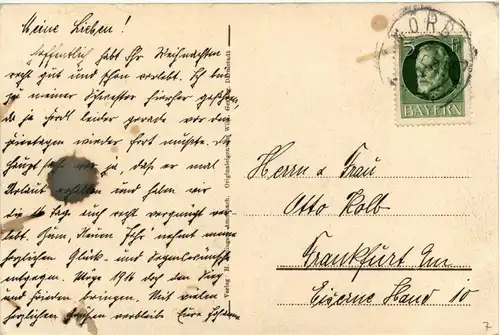 Meine Lieben!
Hoffentlich habt Ihr Weihnachten
recht gut und schön verlebt. Ich bin
zu meiner Schwester hierher gefahren,
da ja Jordl leider gerade vor den
Feiertagen wieder fort mußte. Die
Hauptsache war ja, daß er mal
Urlaub erhalten und haben wir
die 14 Tage auch recht vergnügt ver-
lebt. Zum Neuen Jahr nehmt meine
herzlichen Glück- und Segenswünsche
entgegen. Möge 1916 doch den Sieg
und Frieden bringen. Mit vielen
herzlichen Grüßen verbleibe Eure
Verlag
Originaleigentum
5 Pf
BAYERN
Herrn u Frau
Otto Kolb
Frankfurt a/m
Eiserne Hand 10
7